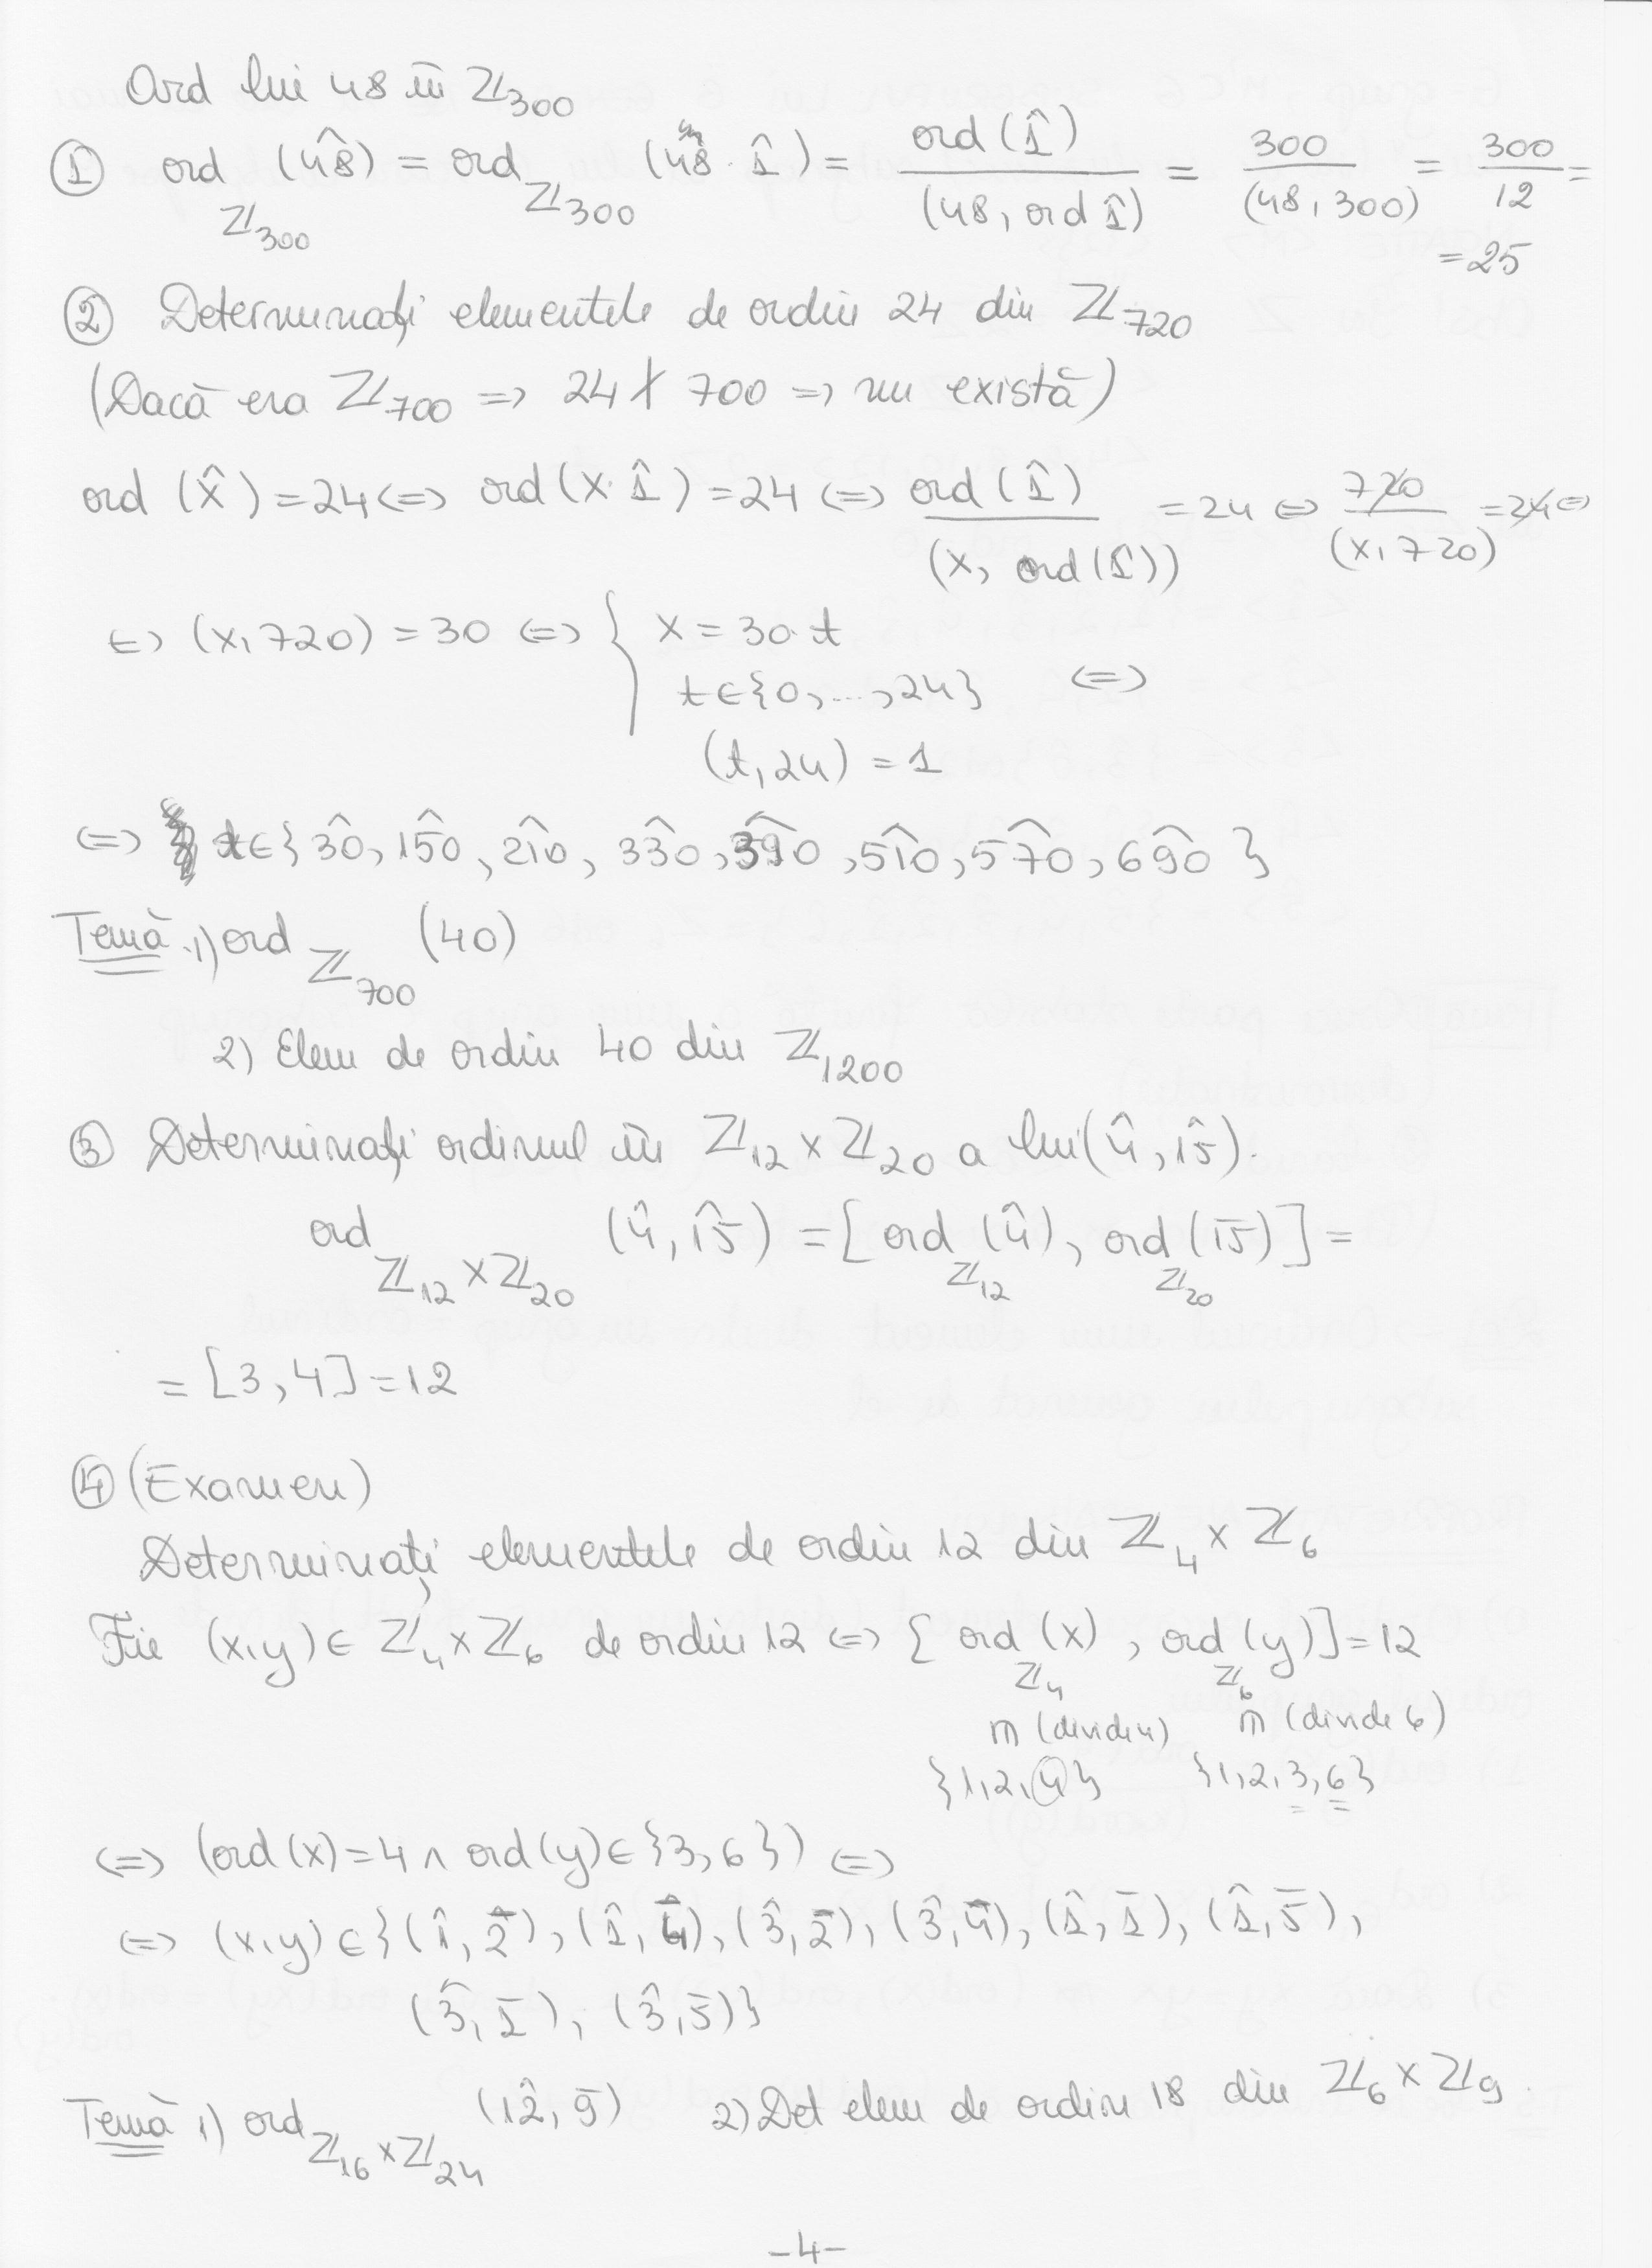 Ord lui 48 în ℤ₃₀₀
① ord_ℤ₃₀₀ (48̂) = ord_ℤ₃₀₀ (48 · 1̂) = ord(1̂) / (48, ord 1̂) = 300 / (48, 300) = 300 / 12 =
= 25
② Determinați elementele de ordin 24 din ℤ₇₂₀
(Dacă era ℤ₇₀₀ => 24 ∤ 700 => nu există)
ord (x̂) = 24 <=> ord(x·1̂) = 24 <=> ord(1̂) / (x, ord(1̂)) = 24 <=> 720 / (x, 720) = 24 <=>
<=> (x, 720) = 30 <=> { x = 30·t
t ∈ {0, ..., 24} <=>
(t, 24) = 1
<=> x ∈ {30̂, 150̂, 210̂, 330̂, 390̂, 510̂, 570̂, 690̂}
Temă 1) ord_ℤ₇₀₀ (40)
2) Elem de ordin 40 din ℤ₁₂₀₀
③ Determinați ordinul în ℤ₁₂ × ℤ₂₀ a lui (4̂, 15̂).
ord_ℤ₁₂×ℤ₂₀ (4̂, 15̂) = [ord_ℤ₁₂ (4̂), ord_ℤ₂₀ (15̅)] =
= [3, 4] = 12
④ (Examen)
Determinați elementele de ordin 12 din ℤ₄ × ℤ₆
Fie (x,y) ∈ ℤ₄ × ℤ₆ de ordin 12 <=> [ord_ℤ₄ (x), ord_ℤ₆ (y)] = 12
⋒ (divide 4) ⋒ (divide 6)
{1, 2, 4} {1, 2, 3, 6}
<=> (ord(x) = 4 ∧ ord(y) ∈ {3, 6}) <=>
<=> (x,y) ∈ {(1̂, 2̅), (1̂, 4̅), (3̂, 2̅), (3̂, 4̅), (1̂, 1̅), (1̂, 5̅),
(3̂, 1̅), (3̂, 5̅)}
Temă 1) ord_ℤ₁₆×ℤ₂₄ (12̂, 9̅) 2) Det elem de ordin 18 din ℤ₆ × ℤ₉.
-4-